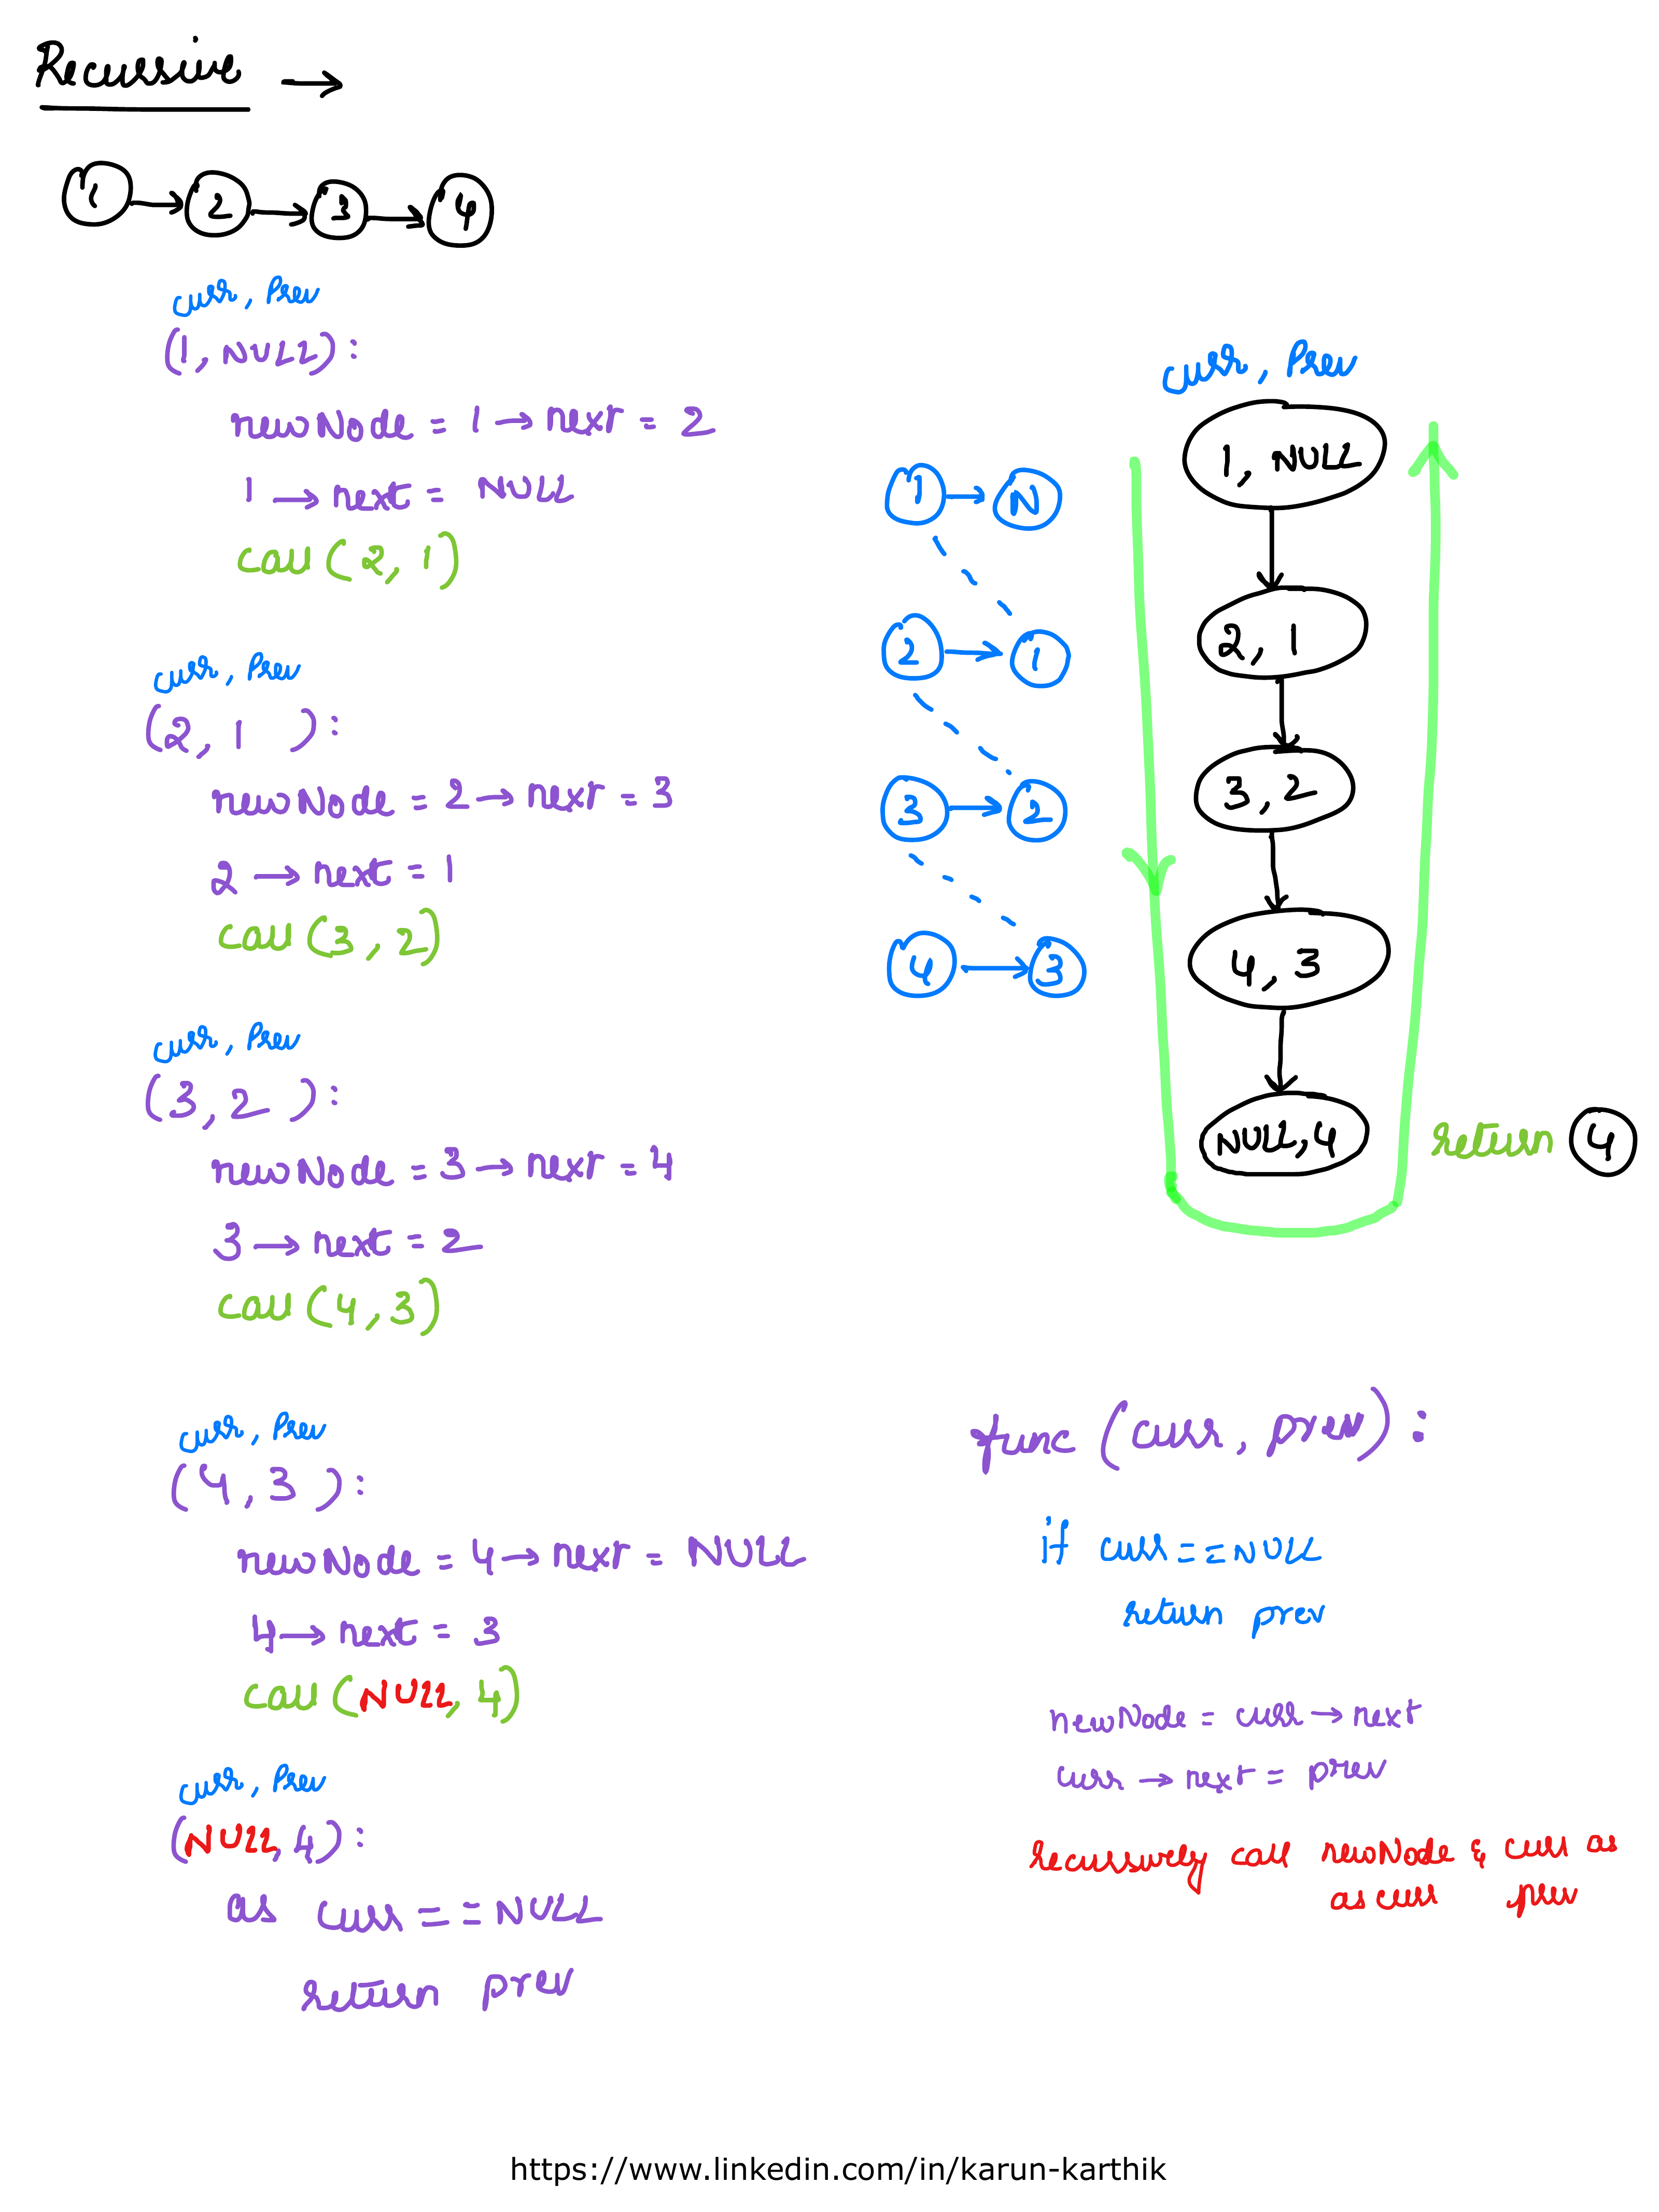 Recursive →
1 → 2 → 3 → 4
curr, Prev
(1, NULL):
newNode = 1 → next = 2
1 → next = NULL
call (2, 1)
curr, Prev
(2, 1 ):
newNode = 2 → next = 3
2 → next = 1
call (3, 2)
curr, Prev
(3, 2 ):
newNode = 3 → next = 4
3 → next = 2
call (4, 3)
curr, Prev
(4, 3 ):
newNode = 4 → next = NULL
4 → next = 3
call (NULL, 4)
curr, Prev
(NULL, 4):
as curr == NULL
return prev
1 → N
2 → 1
3 → 2
4 → 3
curr, Prev
1, NULL
2, 1
3, 2
4, 3
NULL, 4
return 4
func (curr, prev):
if curr == NULL
return prev
newNode = curr → next
curr → next = prev
recursively call newNode & curr as
as curr prev
https://www.linkedin.com/in/karun-karthik